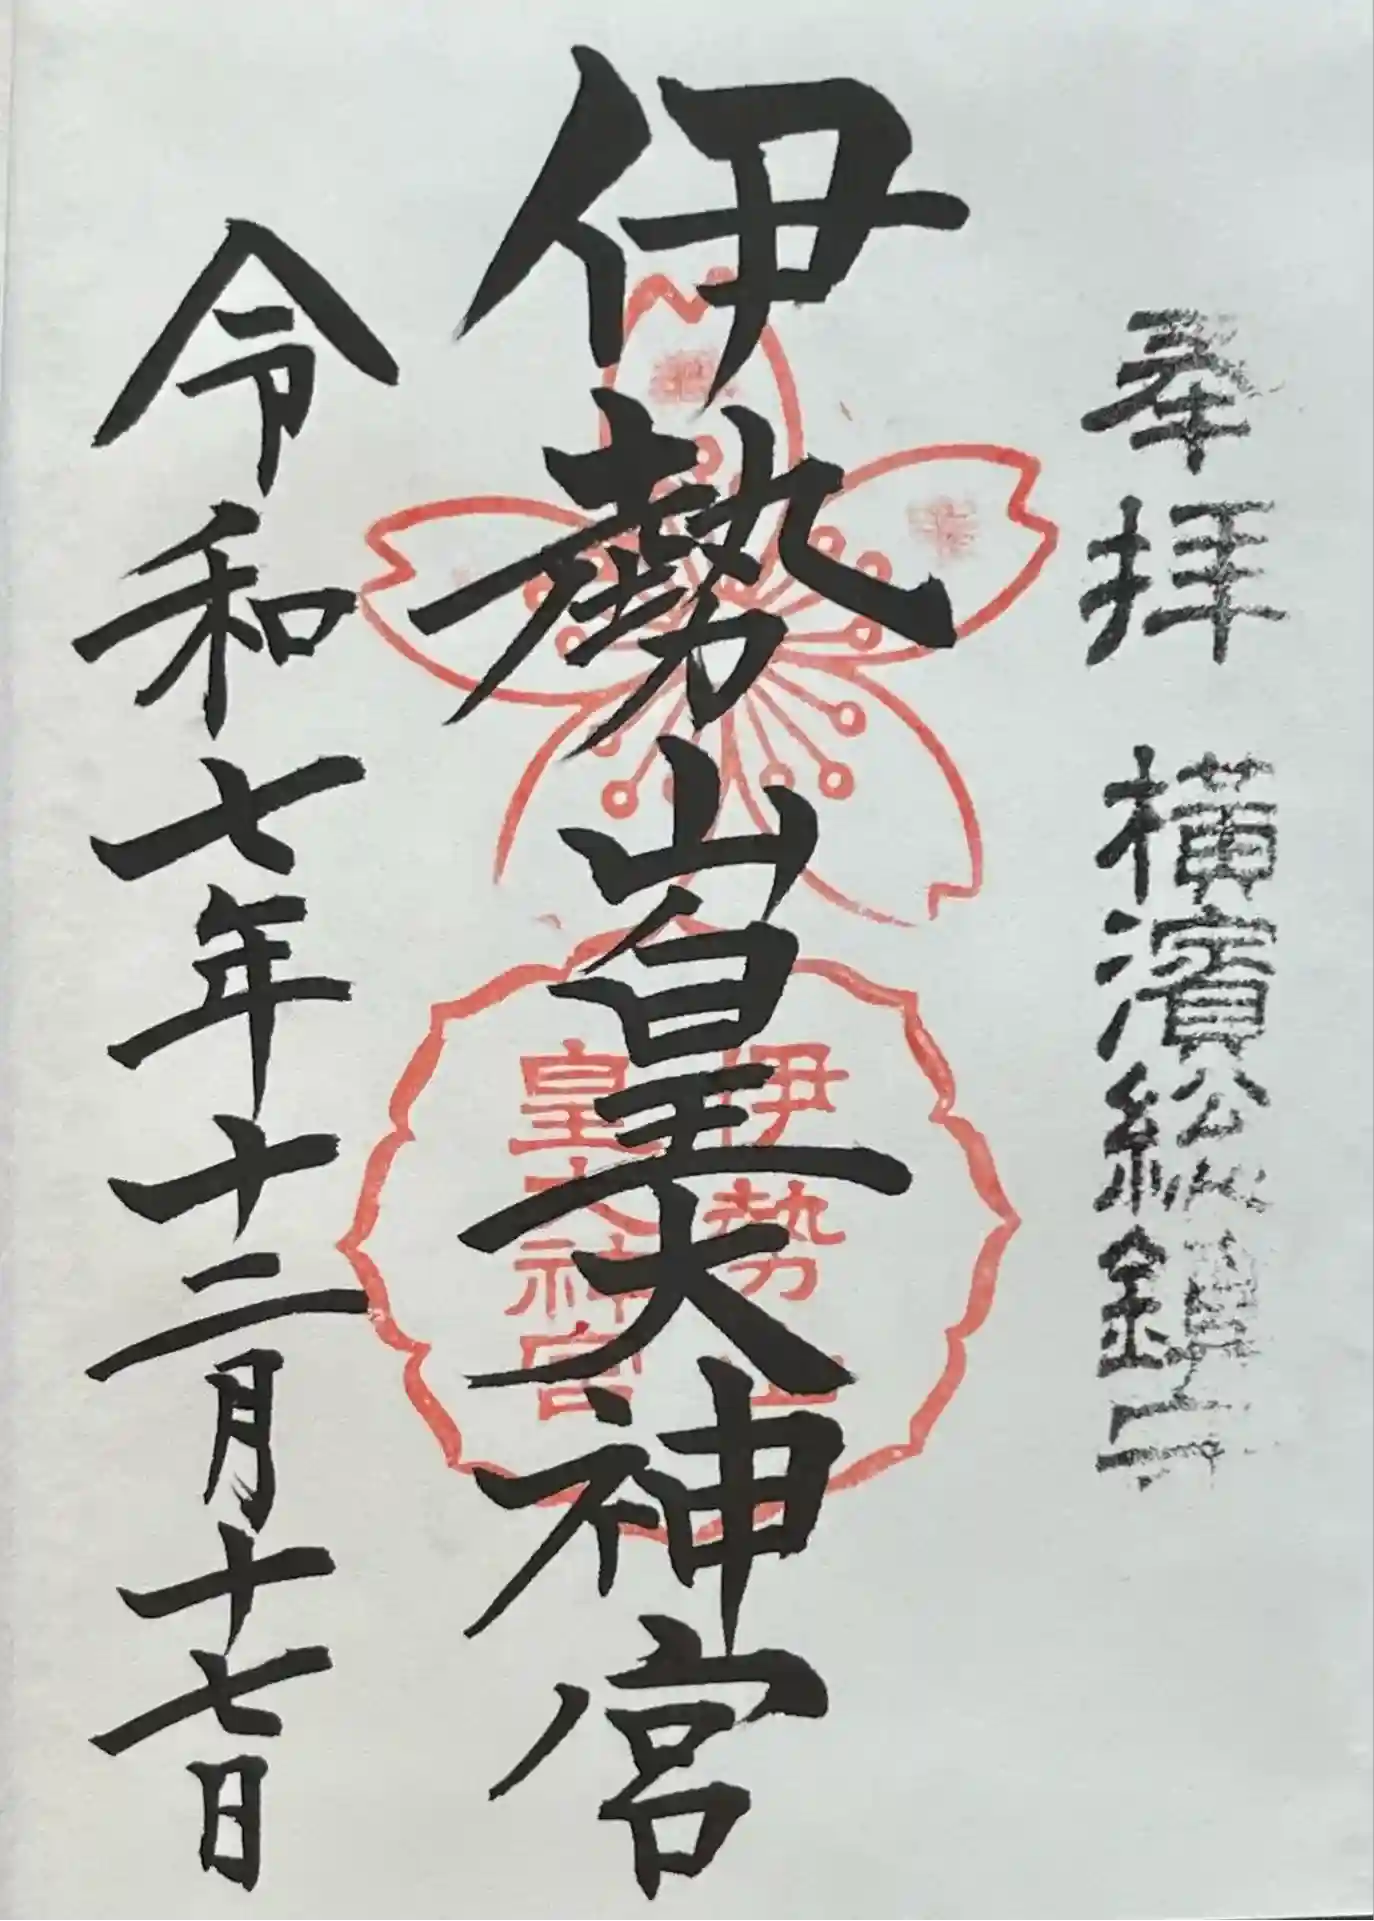 奉拝 横濱総鎮守
伊勢山皇大神宮
伊勢山
皇大神宮
令和七年十二月十七日